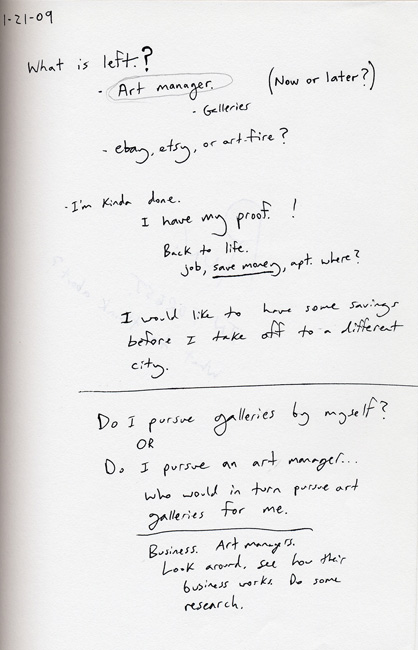 1-21-09
What is left?
- Art manager. (Now or later?)
- Galleries
- ebay, etsy, or art-fire?
- I'm kinda done.
I have my proof. !
Back to life.
job, save money, apt. where?
I would like to have some savings
before I take off to a different
city.
Do I pursue galleries by myself?
OR
Do I pursue an art manager...
who would in turn pursue art
galleries for me.
Business. Art managers.
Look around, see how their
business works. Do some
research.